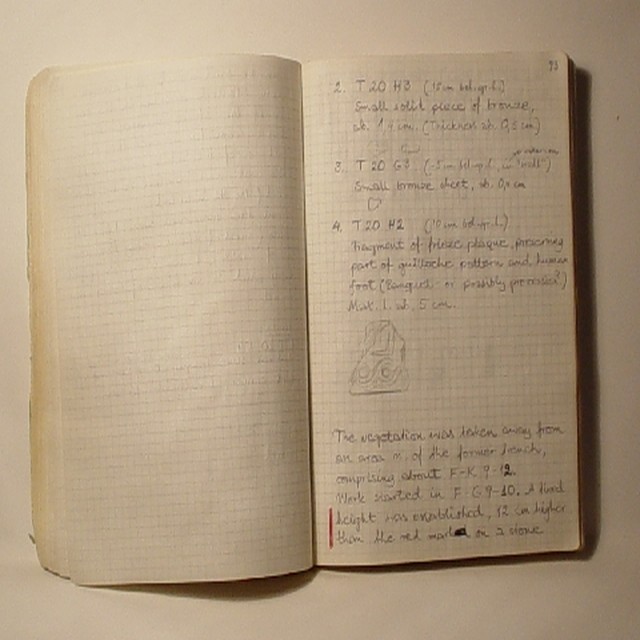 93
2. T 20 H3 (15 cm bel. gr. l.)
Small solid piece of bronze,
ab. 1,4 cm. (Thickness ab. 0,5 cm)
3. T 20 G3 (-5 cm bel. gr. l., in "wall")
Small bronze sheet, ab. cm
4. T 20 H2 (10 cm bel. gr. l.)
Fragment of frieze plaque, preserving
part of guilloche pattern and human
foot (Banquet- or possibly procession?)
Max. l. ab. 5 cm.
The vegetation was taken away from
an area n. of the former trench,
comprising about F-K 9-12.
Work started in F-G 9-10. A fixed
height was established, 12 cm higher
than the red mark on a stone